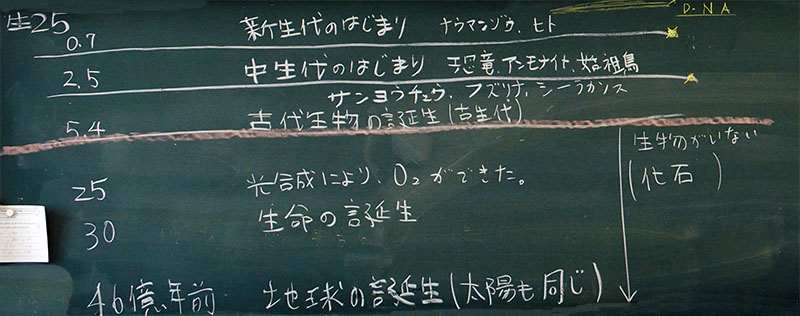 生25
DNA
0.7 新生代のはじまり ナウマンゾウ、ヒト
2.5 中生代のはじまり 恐竜、アンモナイト、始祖鳥
サンヨウチュウ、フズリナ、シーラカンス
5.4 古代生物の誕生(古生代)
生物がいない
(化石)
25 光合成により、O₂ができた。
30 生命の誕生
46億年前 地球の誕生(太陽も同じ)